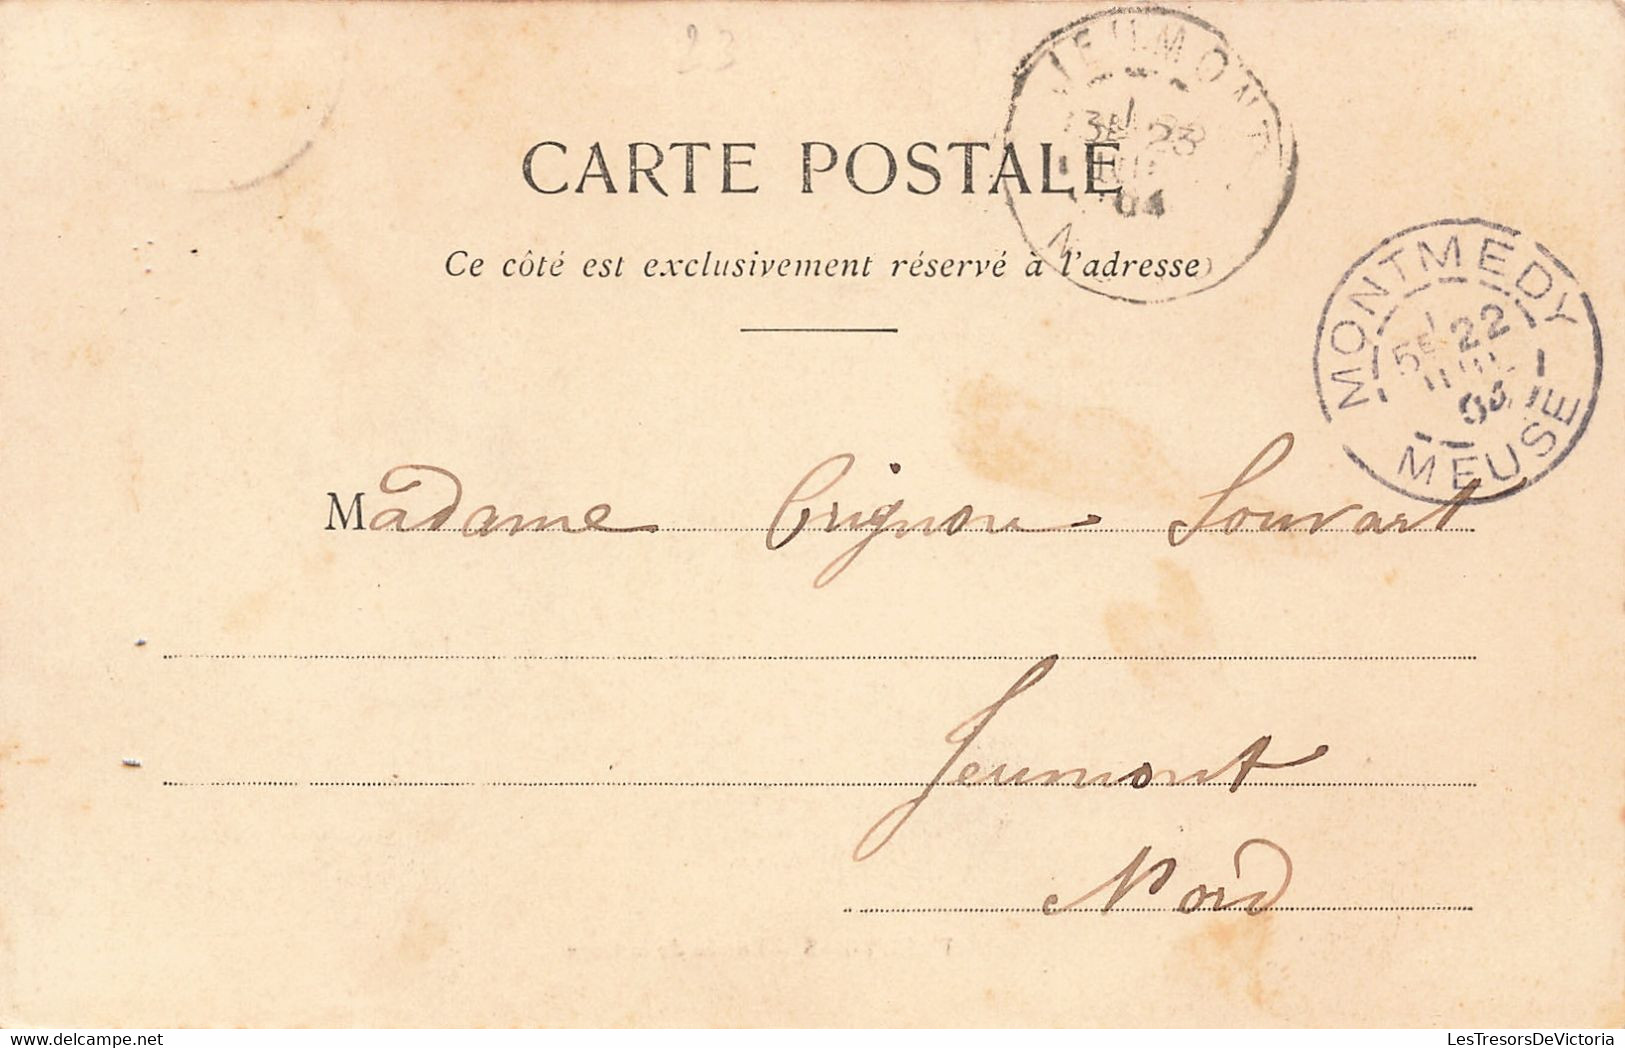 23
CARTE POSTALE
Ce côté est exclusivement réservé à l'adresse
JEUMONT
23
04
MONTMEDY
5E 22
MEUSE
Madame Crignon Souvart
Jeumont
Nord
LesTresorsDeVictoria